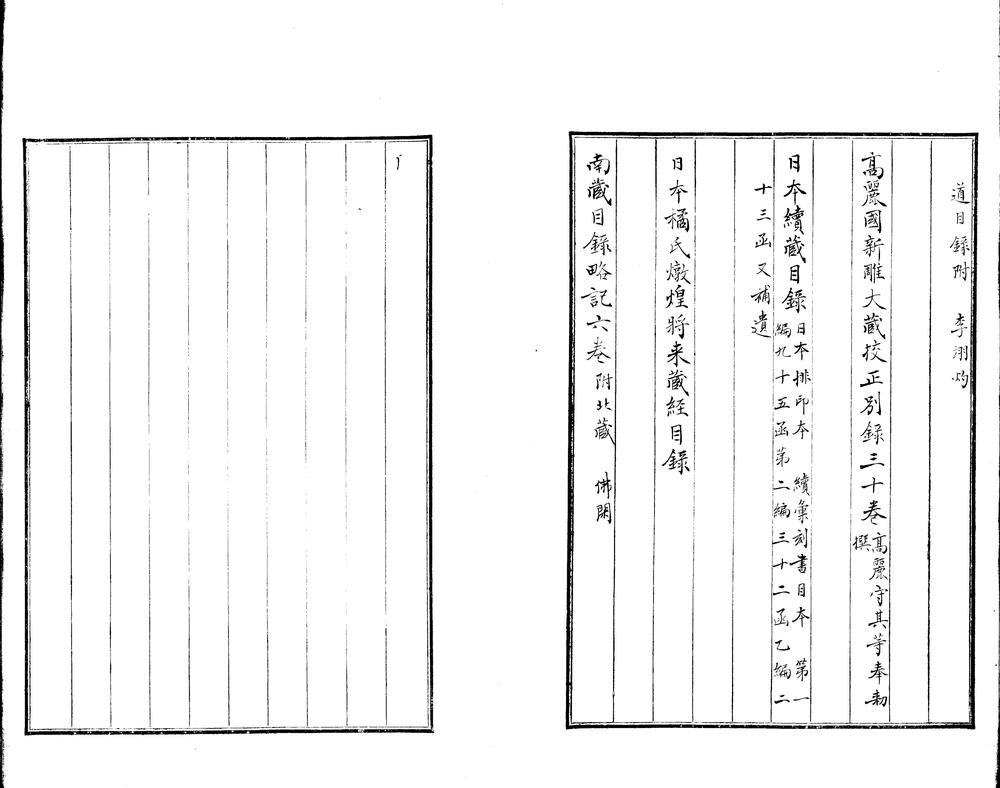 道目錄附　李翊灼
高麗國新雕大藏挍正別錄三十卷高麗守其等奉勅
撰
日本續藏目錄日本排印本　續彙刻書目本　第一
編九十五函第二編三十二函乙編二
十三函又補遺
日本橘氏燉煌將来藏経目錄
南藏目錄略記六卷附北藏　佛閑